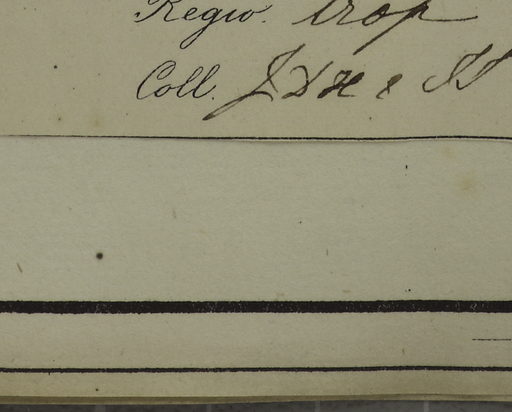 Regio. trop
Coll. J D H & T T